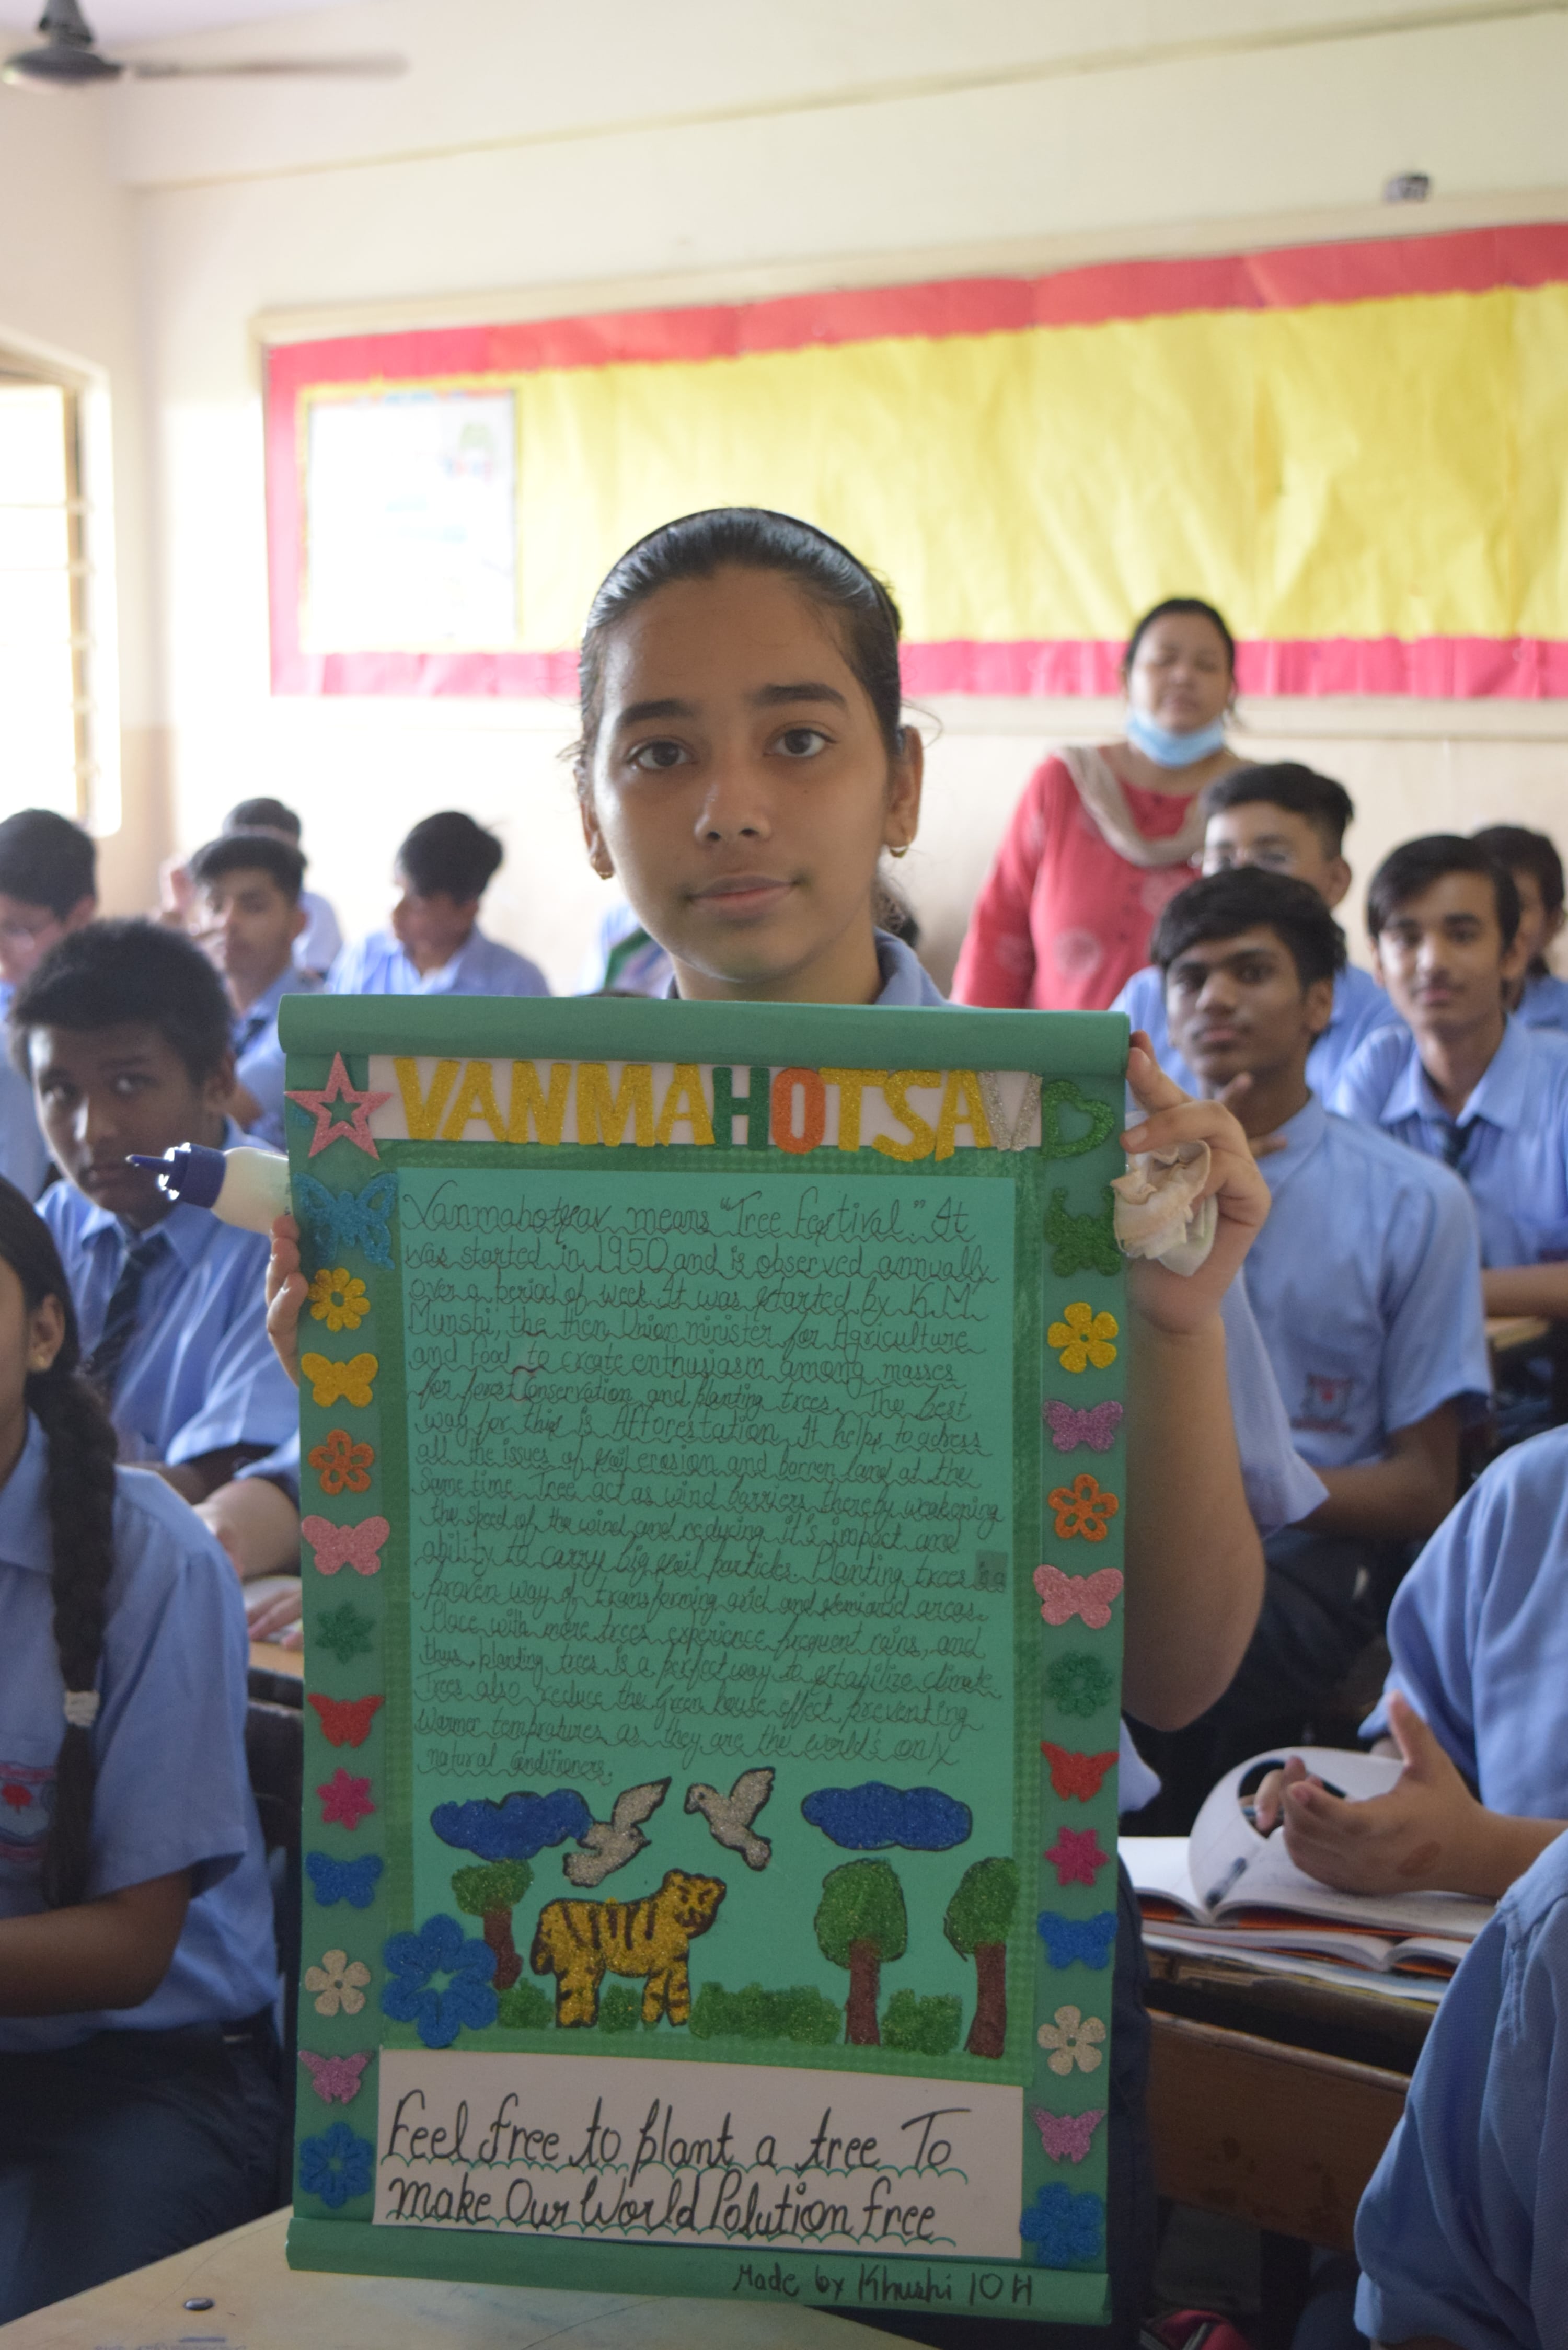 VANMAHOTSAV
Vanmahotsav means "Tree Festival." It
was started in 1950 and is observed annually
over a period of week. It was started by K.M.
Munshi, the then Union minister for Agriculture
and food to create enthusiasm among masses
for forest conservation and planting trees. The best
way for this is Afforestation. It helps to adress
all the issues of soil erosion and barren land at the
same time. Tree act as wind barriers thereby weakening
the speed of the wind and reducing it's impact and
ability to carry big soil particles. Planting trees is a
proven way of transforming arid and semiarid areas.
Place with more trees experience frequent rains, and
thus, planting trees is a perfect way to stabilize climate
Trees also reduce the Green house effect preventing
warmer tempratures as they are the world's only
natural conditioners.
Feel free to plant a tree To
make Our World Polution free
Made by Khushi 10 H